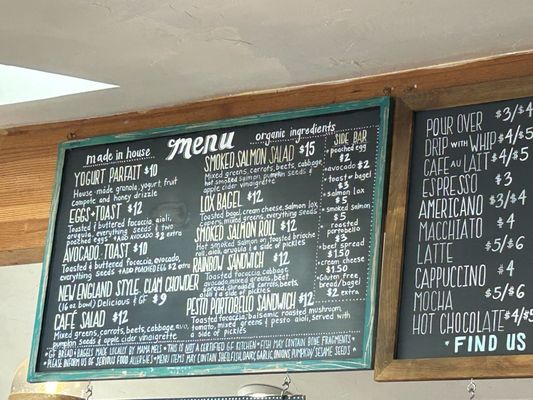 made in house
menu
organic ingredients
YOGURT PARFAIT $10
House-made granola, yogurt, fruit
compote and honey drizzle
EGGS + TOAST $12
Toasted & buttered focaccia, aioli,
arugula, everything seeds & two
poached eggs *ADD AVOCADO $2 extra
AVOCADO TOAST $10
Toasted & buttered focaccia, avocado,
everything seeds *ADD POACHED EGG $2 extra
NEW ENGLAND STYLE CLAM CHOWDER
(16 oz bowl) Delicious & GF $9
CAFÉ SALAD $12
Mixed greens, carrots, beets, cabbage, avo,
pumpkin seeds & apple cider vinaigrette
SMOKED SALMON SALAD $15
Mixed greens, carrots, beets, cabbage,
hot smoked salmon, pumpkin seeds &
apple cider vinaigrette
LOX BAGEL $12
Toasted bagel, cream cheese, salmon lox
mixed greens, everything seeds
SMOKED SALMON ROLL $12
Hot smoked salmon on toasted brioche
roll, aioli, arugula & a side of pickles
RAINBOW SANDWICH $12
Toasted focaccia, cabbage
avocado, mixed greens, beet
spread, carrots, beets &
a side of pickles
PESTO PORTOBELLO SANDWICH $12
Toasted focaccia, balsamic roasted mushroom,
tomato, mixed greens & pesto aioli, served with
a side of pickles
SIDE BAR
poached egg
$2
avocado $2
toast or bagel
$3
salmon lox
$5
smoked salmon
$5
roasted
portobello
$3
beet spread
$1.50
cream cheese
$1.50
gluten free
bread/bagel
$2 extra
*GF BREAD + BAGELS MADE LOCALLY BY MAMA MEL'S * THIS IS NOT A CERTIFIED GF KITCHEN * FISH MAY CONTAIN BONE FRAGMENTS
*PLEASE INFORM US OF SERIOUS FOOD ALLERGIES * MENU ITEMS MAY CONTAIN SHELLFISH, DAIRY, GARLIC, ONIONS, PUMPKIN/SESAME SEEDS
POUR OVER $3/$4
DRIP WITH WHIP $4/$5
CAFÉ AU LAIT $4/$5
ESPRESSO $3
AMERICANO $3/$4
MACCHIATO $4
LATTE $5/$6
CAPPUCCINO $4
MOCHA $5/$6
HOT CHOCOLATE $4/$5
*FIND US